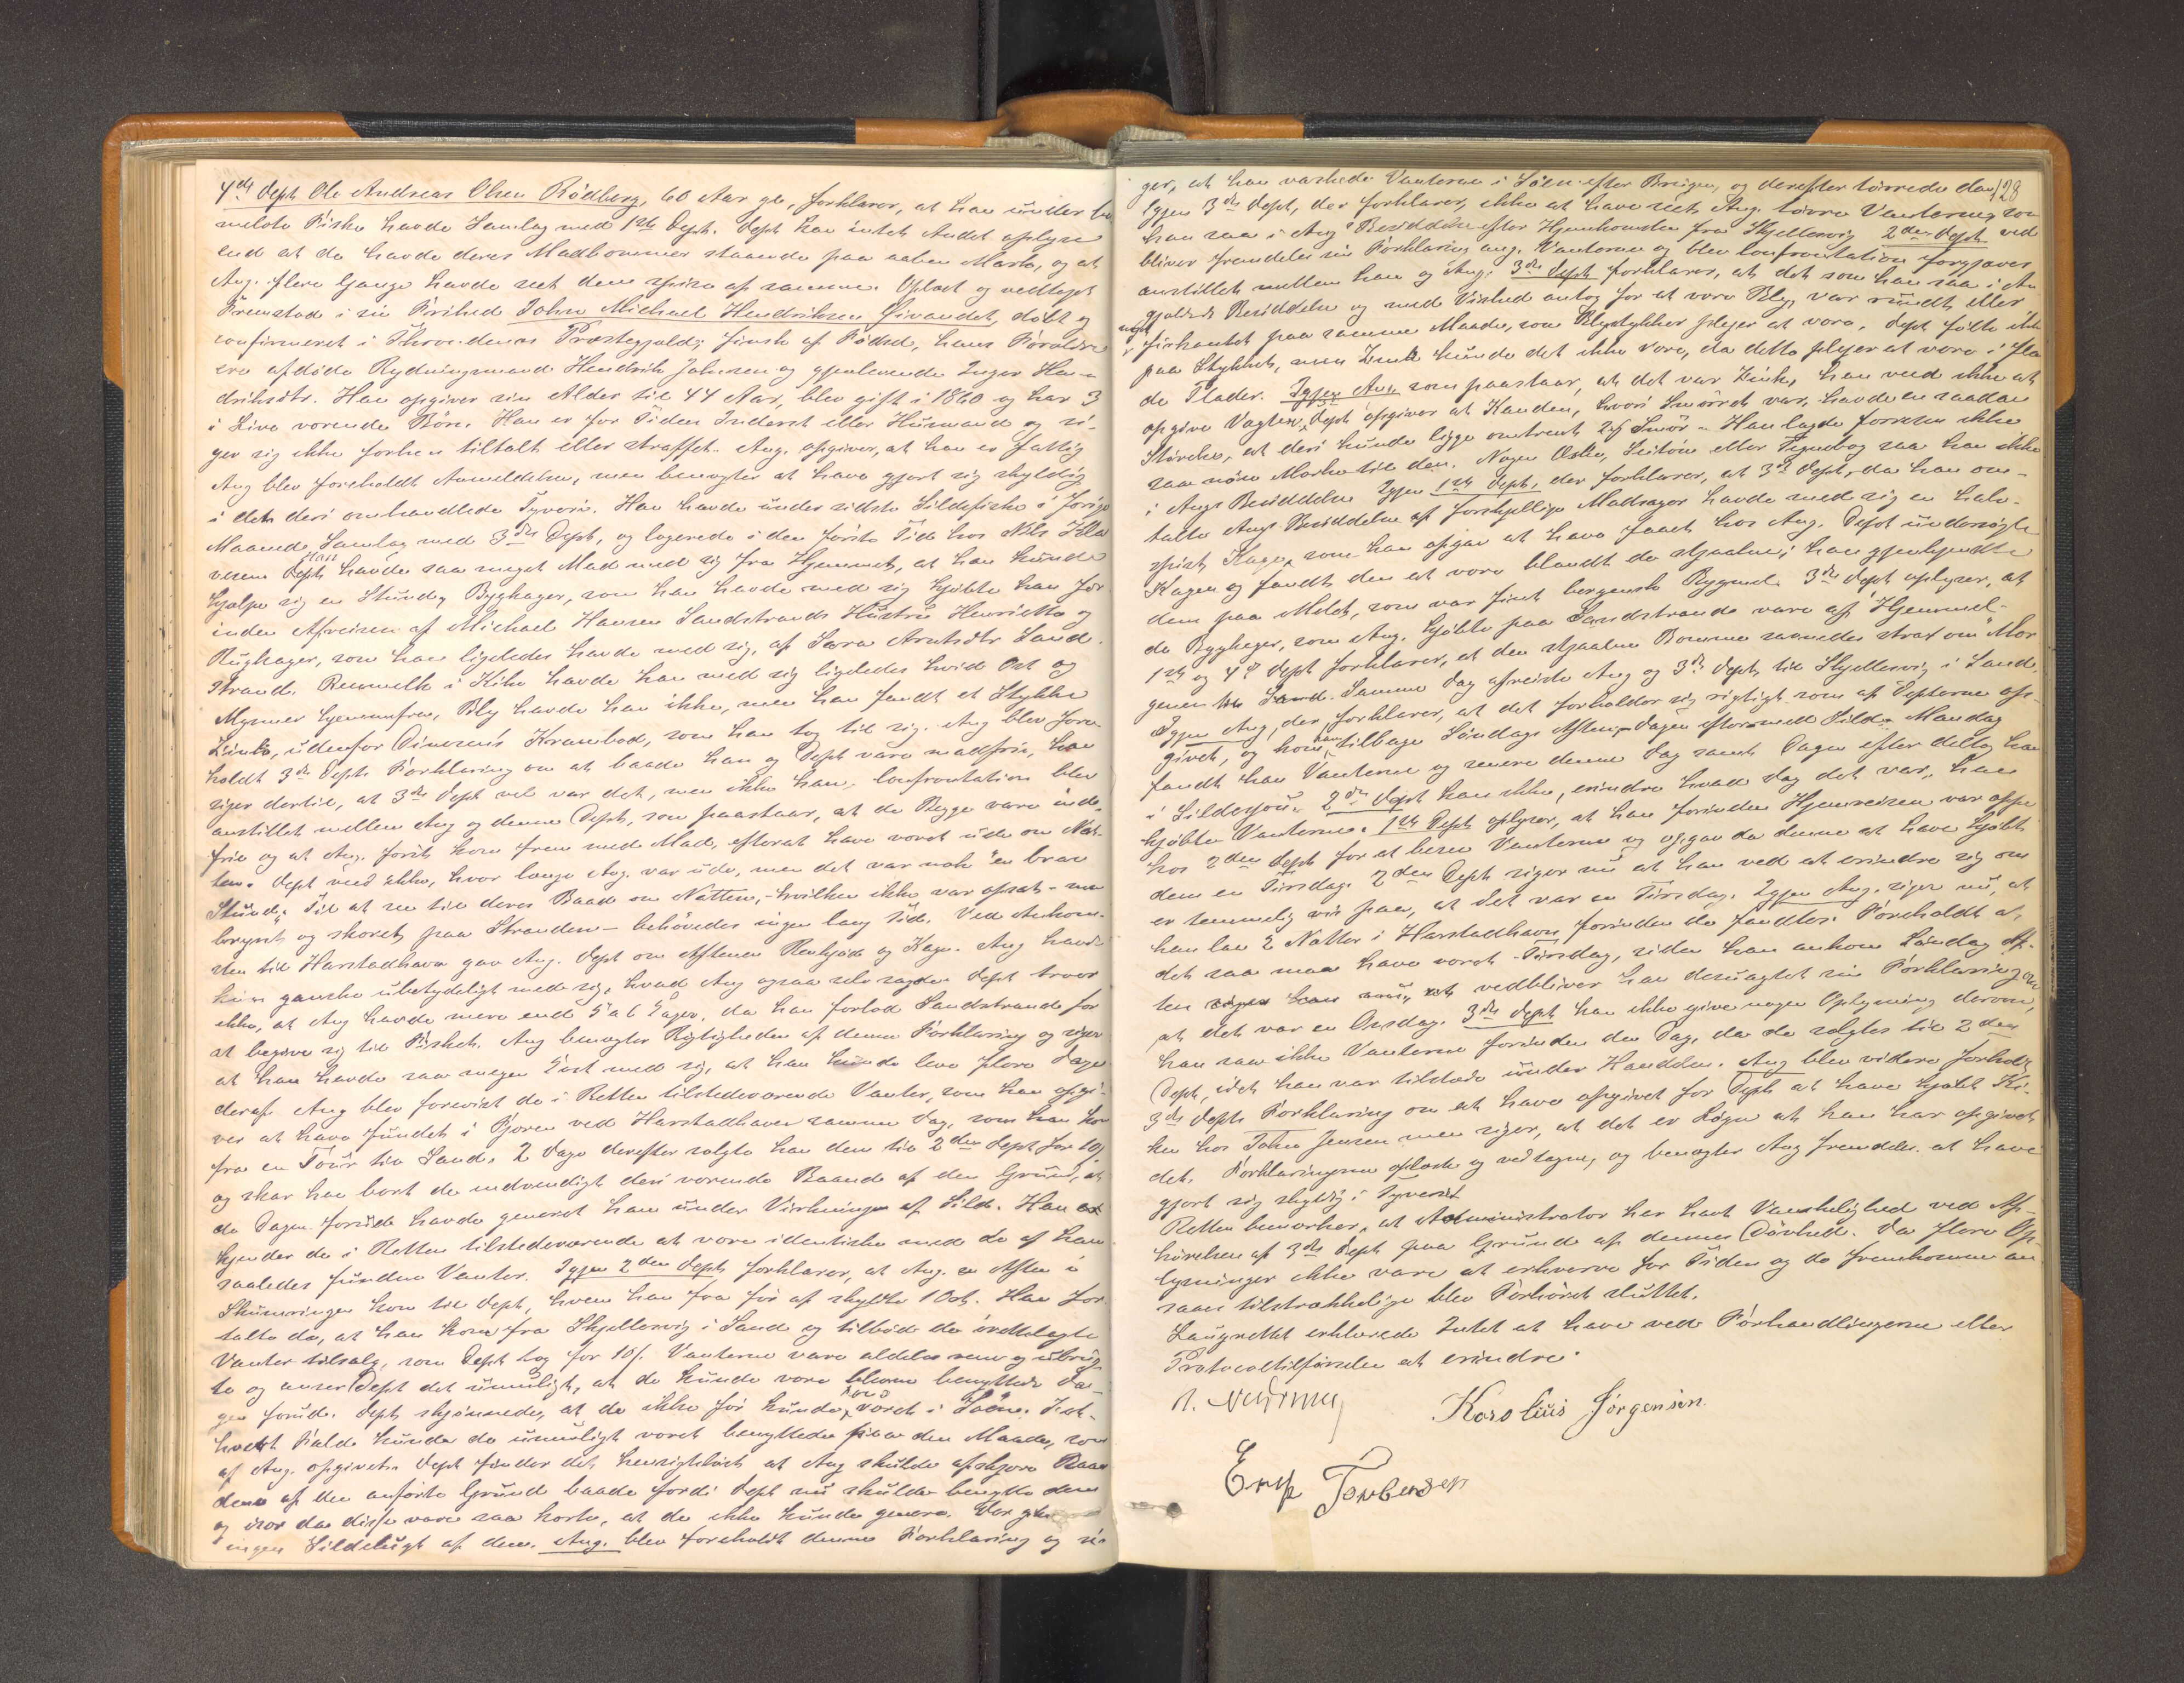 4de Dept Ole Andreas Olsen Rödberg, 60 Aar gl., forklarer, at han under be
meldte Fiske havde Samlag med 1ste Dept. Dept kan intet Andet oplyse
end at de havde deres Madbommer staaende paa aaben Mark, og at
Ang. flere Gange havde seet dem spise af samme. Oplæst og vedtaget
Fremstod i sin Frihed Johan Michael Hendriksen Sivandet, døbt og
confirmeret i Throndenæs Præstegjeld, finsk af Fødsel, hans Forældre
ere afdøde Rydningsmand Hendrik Johnsen og gjenlevende Inger Hen-
driksdtr. Han opgiver sin Alder til 44 Aar, blev gift i 1860 og har 3
i Live værende Børn. Han er for Tiden Inderst eller Husmand og si-
ger sig ikke forhen tiltalt eller straffet. Ang. opgiver, at han er fattig
Ang blev foreholdt Anmeldelsen, men benegter at have gjort sig skyldig
i det deri omhandlede Tyveri. Han havde under sidste Sildefiske i forrige
Maaned Samlag med 3die Dept, og logerede i den første Tid hos Nils
Han havde saa meget Mad med sig fra Hjemmet, at han kunde
hjælpe sig en Stund, Bygkager, som han havde med sig kjøbte han for
inden Afreisen af Michael Hansen Sandstrands Hustru Henriette og
Rugkager, som han ligeledes havde med sig, af Sara Arntsdtr Sand-
strand. Rensmelk i Kihe havde han med sig ligeledes hvid Ost og
Mysmør hjemmefra, Bly havde han ikke, men han fandt et Stykke
Zink, udenfor Dinesens Krambod, som han tog til sig. Ang blev fore
holdt 3die Depts Forklaring om at baade han og Dept vare madfrie, han
siger dertil, at 3die Dept vel var det, men ikke han. Confrontation blev
anstillet mellem Ang og denne Dept, som paastaar, at de Begge vare mad-
frie og at Ang. først kom frem med Mad, efterat have været ude om Nat-
ten. Dept veed ikke, hvor længe Ang. var ude, men det var nok "en brav
Stund". Til at see til deres Baad om Natten, - hvilken ikke var opsat - men
og skoret paa Stranden - behøvedes ingen lang Tid. Ved Ankom-
sten til Harstadhavn gav Ang. Dept om Aftenen Renkjød og Kage. Ang havde
kun ganske ubetydeligt med sig, hvad Ang ogsaa selv sagde. Dept troer
ikke, at Ang havde mere end 5 à 6 Kager, da han forlod Sandstrand for
at begive sig til Fisket. Ang benegter Rigtigheden af denne Forklaring og siger
at han havde saa megen Kost med sig, at han kunde leve flere Dage
deraf. Ang blev forevist de i Retten tilstedeværende Vanter, som han opgi-
ver at have fundet i Fjæren ved Harstadhavn samme Dag, som han kom
fra en Tour til Sand. 2 Dage derefter solgte han dem til 2den Dept for 10 s.
og skar han bort de indvendigt deri værende Baand af den Grund, at
de Dagen forud havde generet ham under Virkningen af Sild. Han er
kjender de i Retten tilstedeværende at være identiske med de af ham
saaledes fundne Vanter. Igjen 2den Dept forklarer, at Ang. en Aften i
Skumringen kom til Dept, hvem han fra før af skyldte 1 Ort. Han for
talte da, at han kom fra Skjellesvig i Sand og tilbød de
Vanter tilsalg, som Dept tog for 10 s. Vanterne vare aldeles rene og ubrug-
te og anser Dept det umuligt, at de kunde være blevne benyttede Da-
gen forud. Dept skjønnede, at de ikke før kunde have været i Søen. I et-
hvert Fald kunde de umuligt været benyttede paa den Maade, som
af Ang. opgivet. Dept finder det hensigtsløst at Ang skulde afskjære Baan
dene af den anførte Grund baade fordi Dept nu skulde benytte dem
og især da disse vare saa korte, at de ikke kunde genere. Der
ingen Sildelugt af dem. Ang. blev foreholdt denne Forklaring og si-
128
ger, at han vaskede Vanterne i Søen efter Brugen, og derefter tørrede dem
Igjen 3die Dept, der forklarer, ikke at have seet Ang. tørre Vanterne, som
han saa i Angs Besiddelse efter Hjemkomsten fra Skjellesvig. 2den Dept ved
bliver fremdeles sin Forklaring ang. Vanterne og blev Confrontation forgjæves
anstillet mellem ham og Ang. 3die Dept forklarer, at det som han saa i An
gjældendes Besiddelse og med Vished antog for at være Bly, var rundt eller
firkantet paa samme Maade, som Blystykker plejer at være. Dept følte ikke
paa Stykket, men Zink kunde det ikke være, da dette plejer at være i fla
de Plader. Igjen Ang som paastaar, at det var Zink, kan veed ikke at
opgive Vægten. Dept opgiver at Kanden, hvori Smørret var, havde en saadan
Størrelse, at deri kunde ligge omtrent 2 Smør. - Han lagde forresten ikke
saa nøie Mærke til den. Nogen Æske, eller saa han ikke
i Angs Besiddelse Igjen 1ste Dept, der forklarer, at 3die Dept, da han om-
talte Angs Besiddelse af forskjellige Madvarer havde med sig en halv-
spist Kage, som han opgav at have faaet hos Ang. Dept undersøgte
Kagen og fandt den at være blandt de stjaalne; han gjenkjendte
dem paa Melet, som var fint bergensk Bygmel. 3die Dept oplyser, at
de Bygkager, som Ang. kjøbte paa Sandstrand vare af "Hjemmel-
1ste og 4de Dept forklarer, at den stjaalne Bomme savnedes strax om "Mor
genen. Samme Dag afreiste Ang og 3die Dept til Skjellesvig i Sand.
Igjen Ang, der forklarer, at det forholder sig rigtigt som af Depterne op-
givet, og kom han tilbage Søndags Aften, Dagen efter med Sild. Mandag
fandt han Vanterne og senere denne Dag samt Dagen efter deltog han
i Sildesjouen. 2den Dept kan ikke, erindre hvad Dag det var, han
kjøbte Vanterne. 1ste Dept oplyser, at han forinden Hjemreisen var oppe
hos 2den Dept for at bese Vanterne og opgav da denne at have kjøbt
dem en Tirsdag. 2den Dept siger nu at han ved at erindre sig om
er temmelig vis paa, at det var en Tirsdag. Igjen Ang. siger nu, at
han laa 2 Nætter i Harstadhavn, forinden de fandtes. Foreholdt at
det saa maa have været Tirsdag, siden han ankom Søndag Af-
ten vedbliver han desuagtet sin Forklaring om
at det var en Onsdag. 3die Dept kan ikke give nogen Oplysning derom,
han saa ikke Vanterne forinden den Dag, da de solgtes til 2den
Dept, idet han var tilstede under Handelen. Ang blev videre foreholdt
3die Depts Forklaring om at have opgivet for Dept at have kjøbt Ki-
hen hos Johan Jensen men siger, at det er Løgn at han har opgivet
det. Forklaringerne oplæste og vedtagne, og benægter Ang fremdeles at have
gjort sig skyldig i Tyveriet
Retten bemærker, at Administrator har havt Vanskelighed ved Af-
hørelsen af 3die Dept paa Grund af dennes Døvhed. Da flere Op
lysninger ikke vare at erhverve for Tiden og de fremkomne an
saaes tilstrækkelige blev Forhøret sluttet.
Laugrettet erklærede Intet at have ved Forhandlingerne eller
Protocoltilførselen at erindre.
Karolius Jørgensen
Torbersen